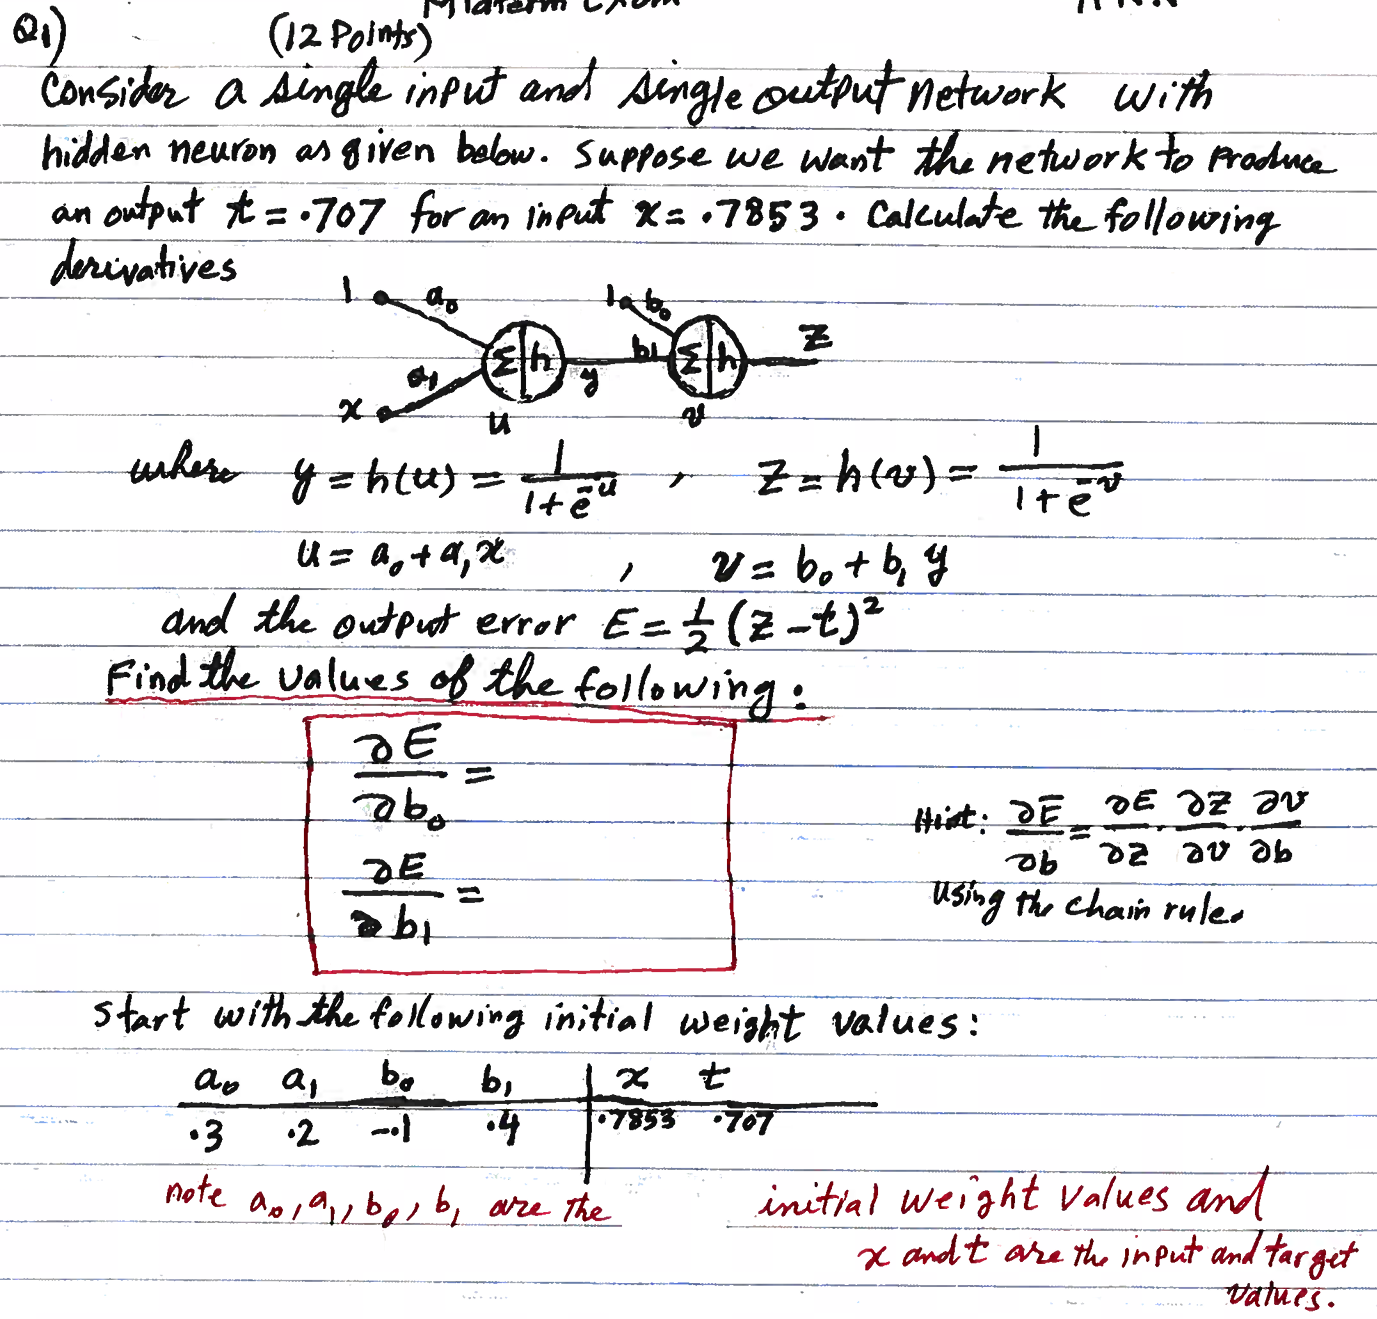 Midterm Exam
Q1) (12 Points)
Consider a single input and single output network with
hidden neuron as given below. Suppose we want the network to produce
an output t = .707 for an input x = .7853. Calculate the following
derivatives
1 a₀ 1 b₀
Σ|h y b₁ Σ|h z
x a₁ u v
where y = h(u) = 1/(1+e^-u) , z = h(v) = 1/(1+e^-v)
u = a₀ + a₁x , v = b₀ + b₁ y
and the output error E = 1/2 (z - t)²
Find the values of the following:
∂E/∂b₀ =
∂E/∂b₁ =
Hint: ∂E/∂b = ∂E/∂z · ∂z/∂v · ∂v/∂b
using the chain rule.
Start with the following initial weight values:
a₀ a₁ b₀ b₁ | x t
.3 .2 -.1 .4 | .7853 .707
note a₀, a₁, b₀, b₁ are the initial weight values and
x and t are the input and target
values.